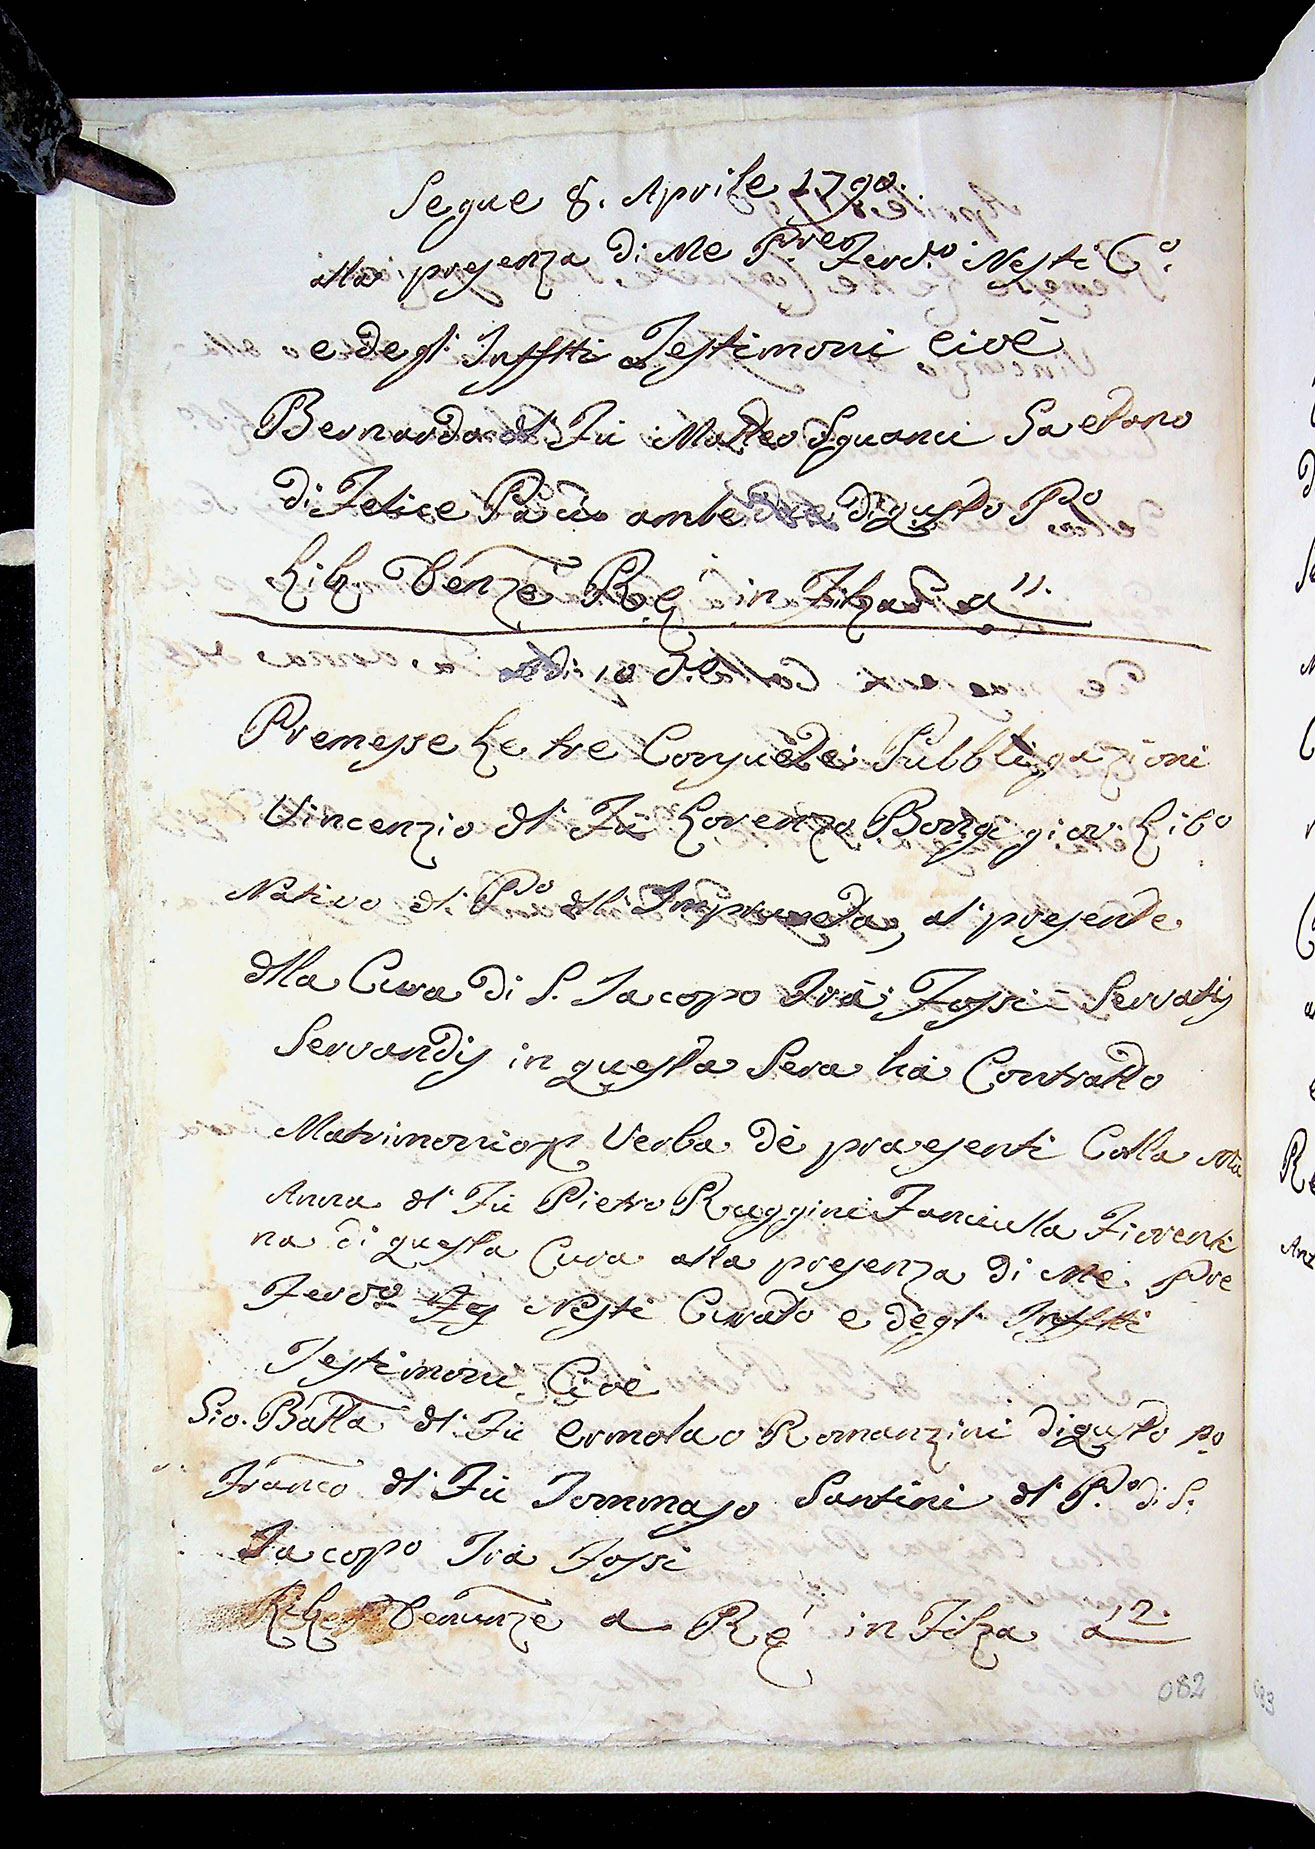 Segue 8. Aprile 1790.
alla presenza di Me P.re Ferd.o Nesti C.o
e degl' Infftti Testimoni cioè
Bernardo dl' Fù Matteo Sguanci Gaetano
di Felice ambedue di qusto P.o
in Filza a 11.
Adi 10 d.o
Premesse le tre Consuete Pubbligazioni
Vincenzio dl' Fù Lorenzo Borgi giov: Lib.o
Nativo dl' P.o dll' Impruneta, al presente
dlla Cura di S. Iacopo Trà Fossi Servatis
Servandis in questa Sera hà Contratto
Matrimonio p Verba dè praesenti Colla
Anna dl' Fù Pietro Ruggini Fanciulla Fiorenti
na di questa Cura alla presenza di Me. Pre
Ferd.o Nesti Curato e degl' Inffttti
Testimoni Cioè
Gio. Batta dl' Fù Ermolao Romanzini di qusto Po
Franco dl' Fù Tommaso Santini dl' P.o di S.
Iacopo Trà Fossi
Denunze a in Filza a 2.
082